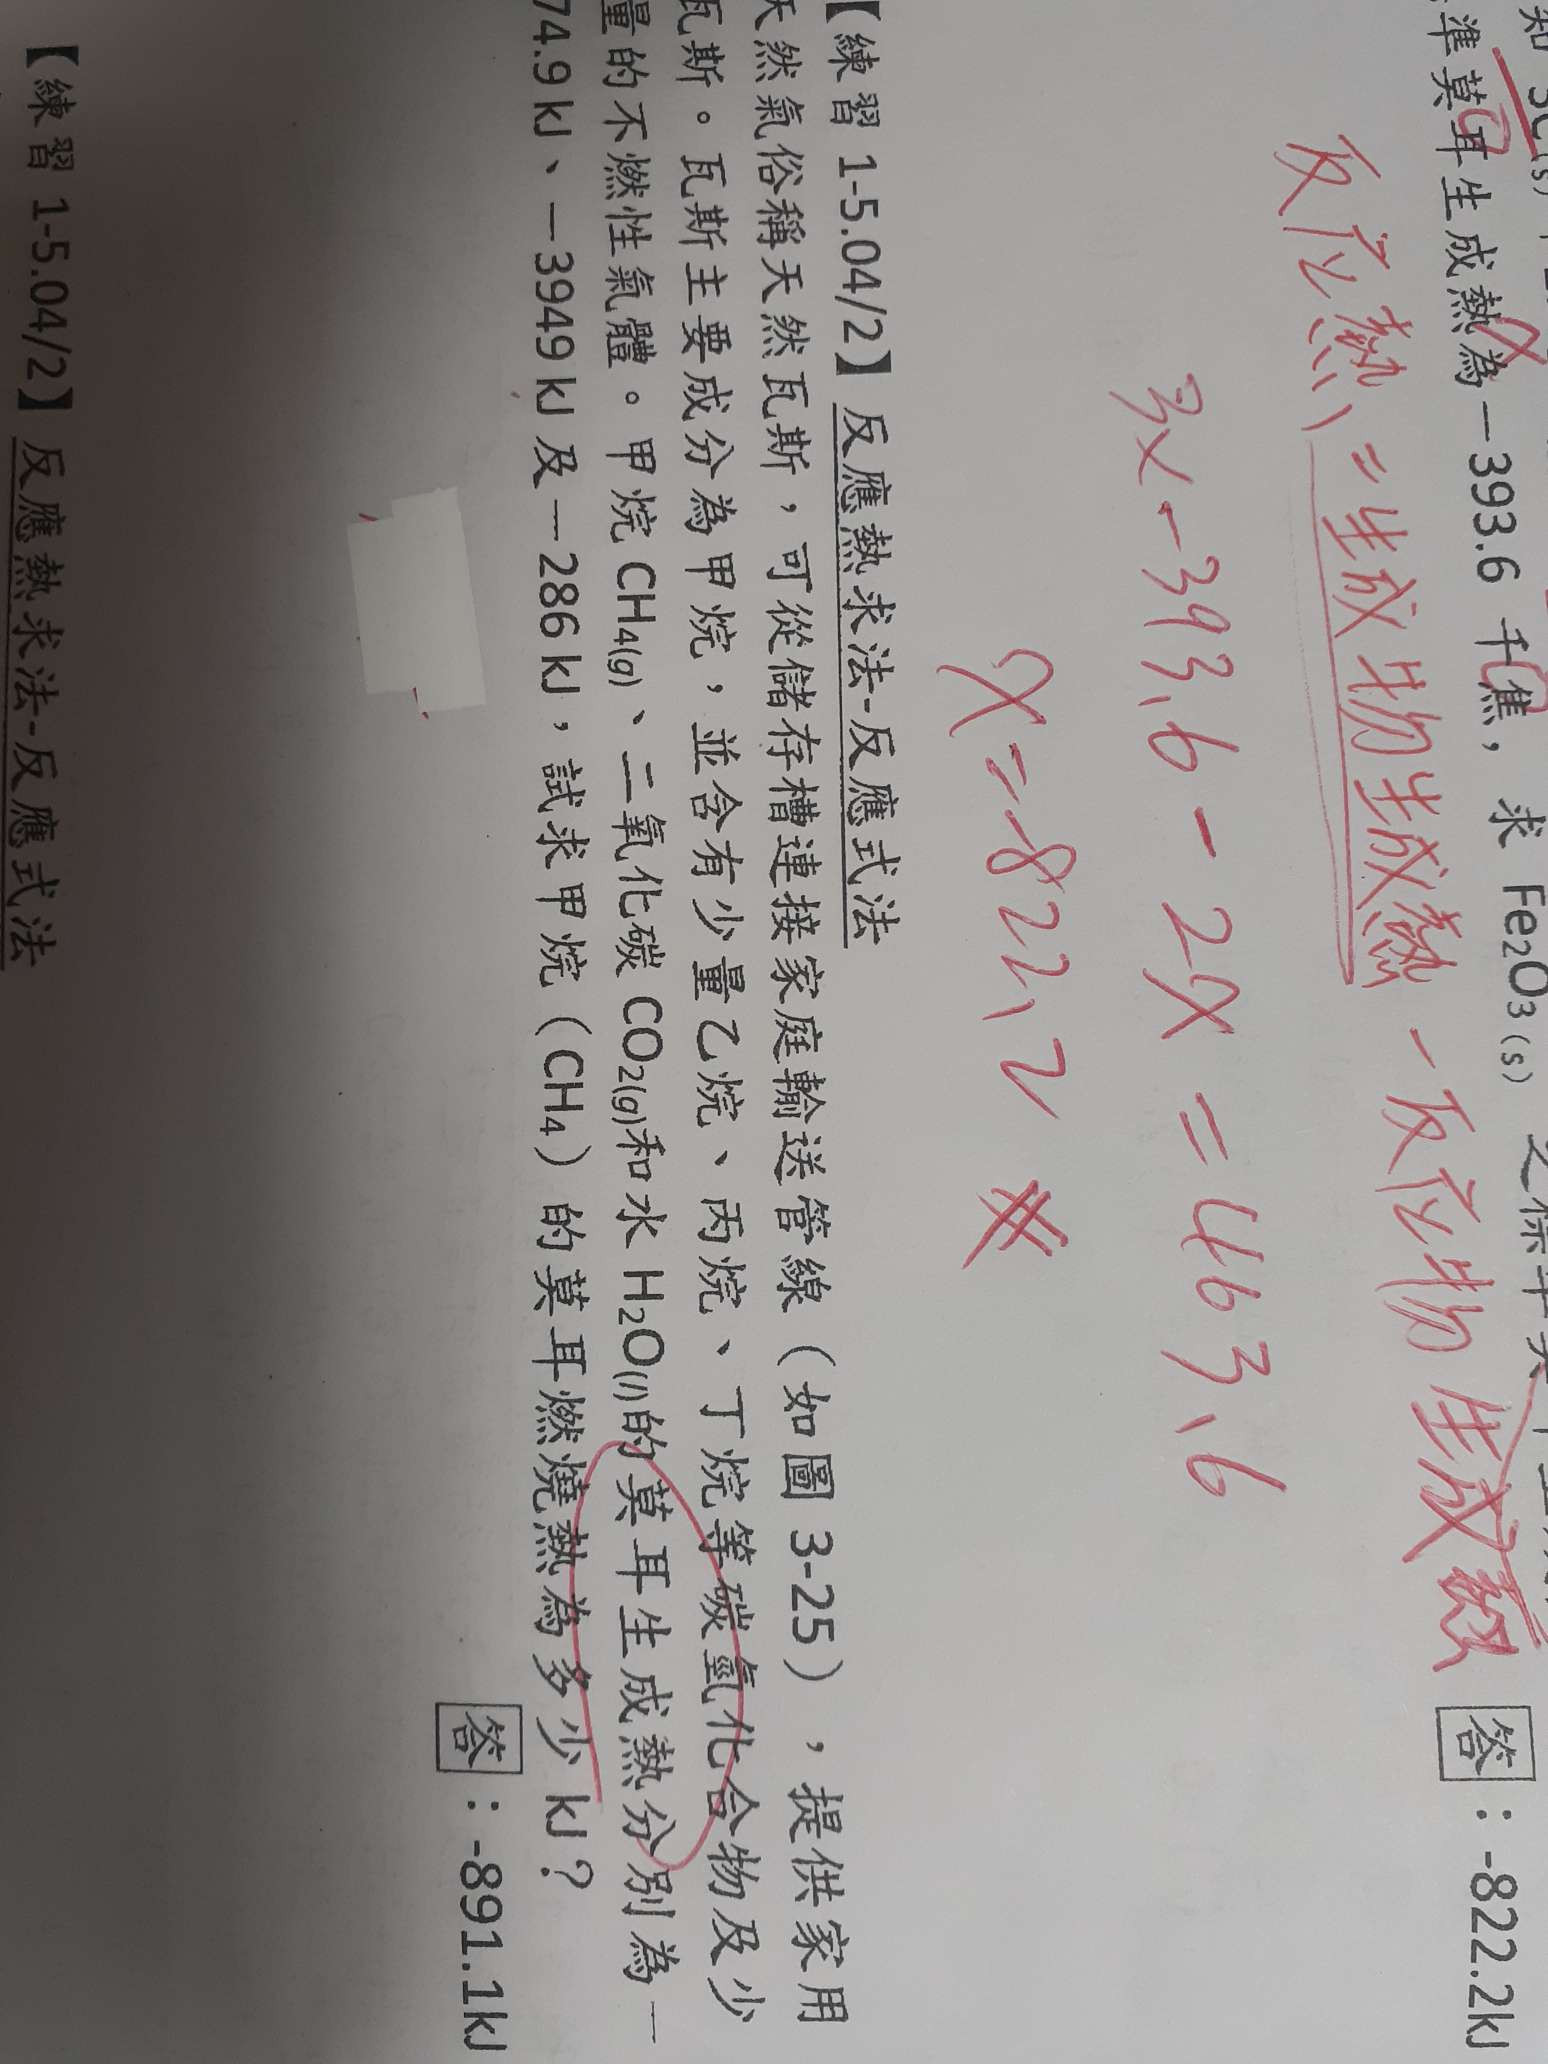 準莫耳生成熱為－393.6 千焦，求 Fe₂O₃₍s₎
答：-822.2kJ
反应熱=生成物生成熱-反应物生成
3x-393.6-2x=463.6
x=-822.2
【練習 1-5.04/2】反應熱求法-反應式法
天然氣俗稱天然瓦斯，可從儲存槽連接家庭輸送管線（如圖 3-25），提供家用
瓦斯。瓦斯主要成分為甲烷，並含有少量乙烷、丙烷、丁烷等碳氫化合物及少
量的不燃性氣體。甲烷 CH₄(g)、二氧化碳 CO₂(g)和水 H₂O(l)的莫耳生成熱分別為－
74.9 kJ、－3949 kJ 及－286 kJ，試求甲烷（CH₄）的莫耳燃燒熱為多少 kJ？
答：-891.1kJ
【練習 1-5.04/2】反應熱求法-反應式法